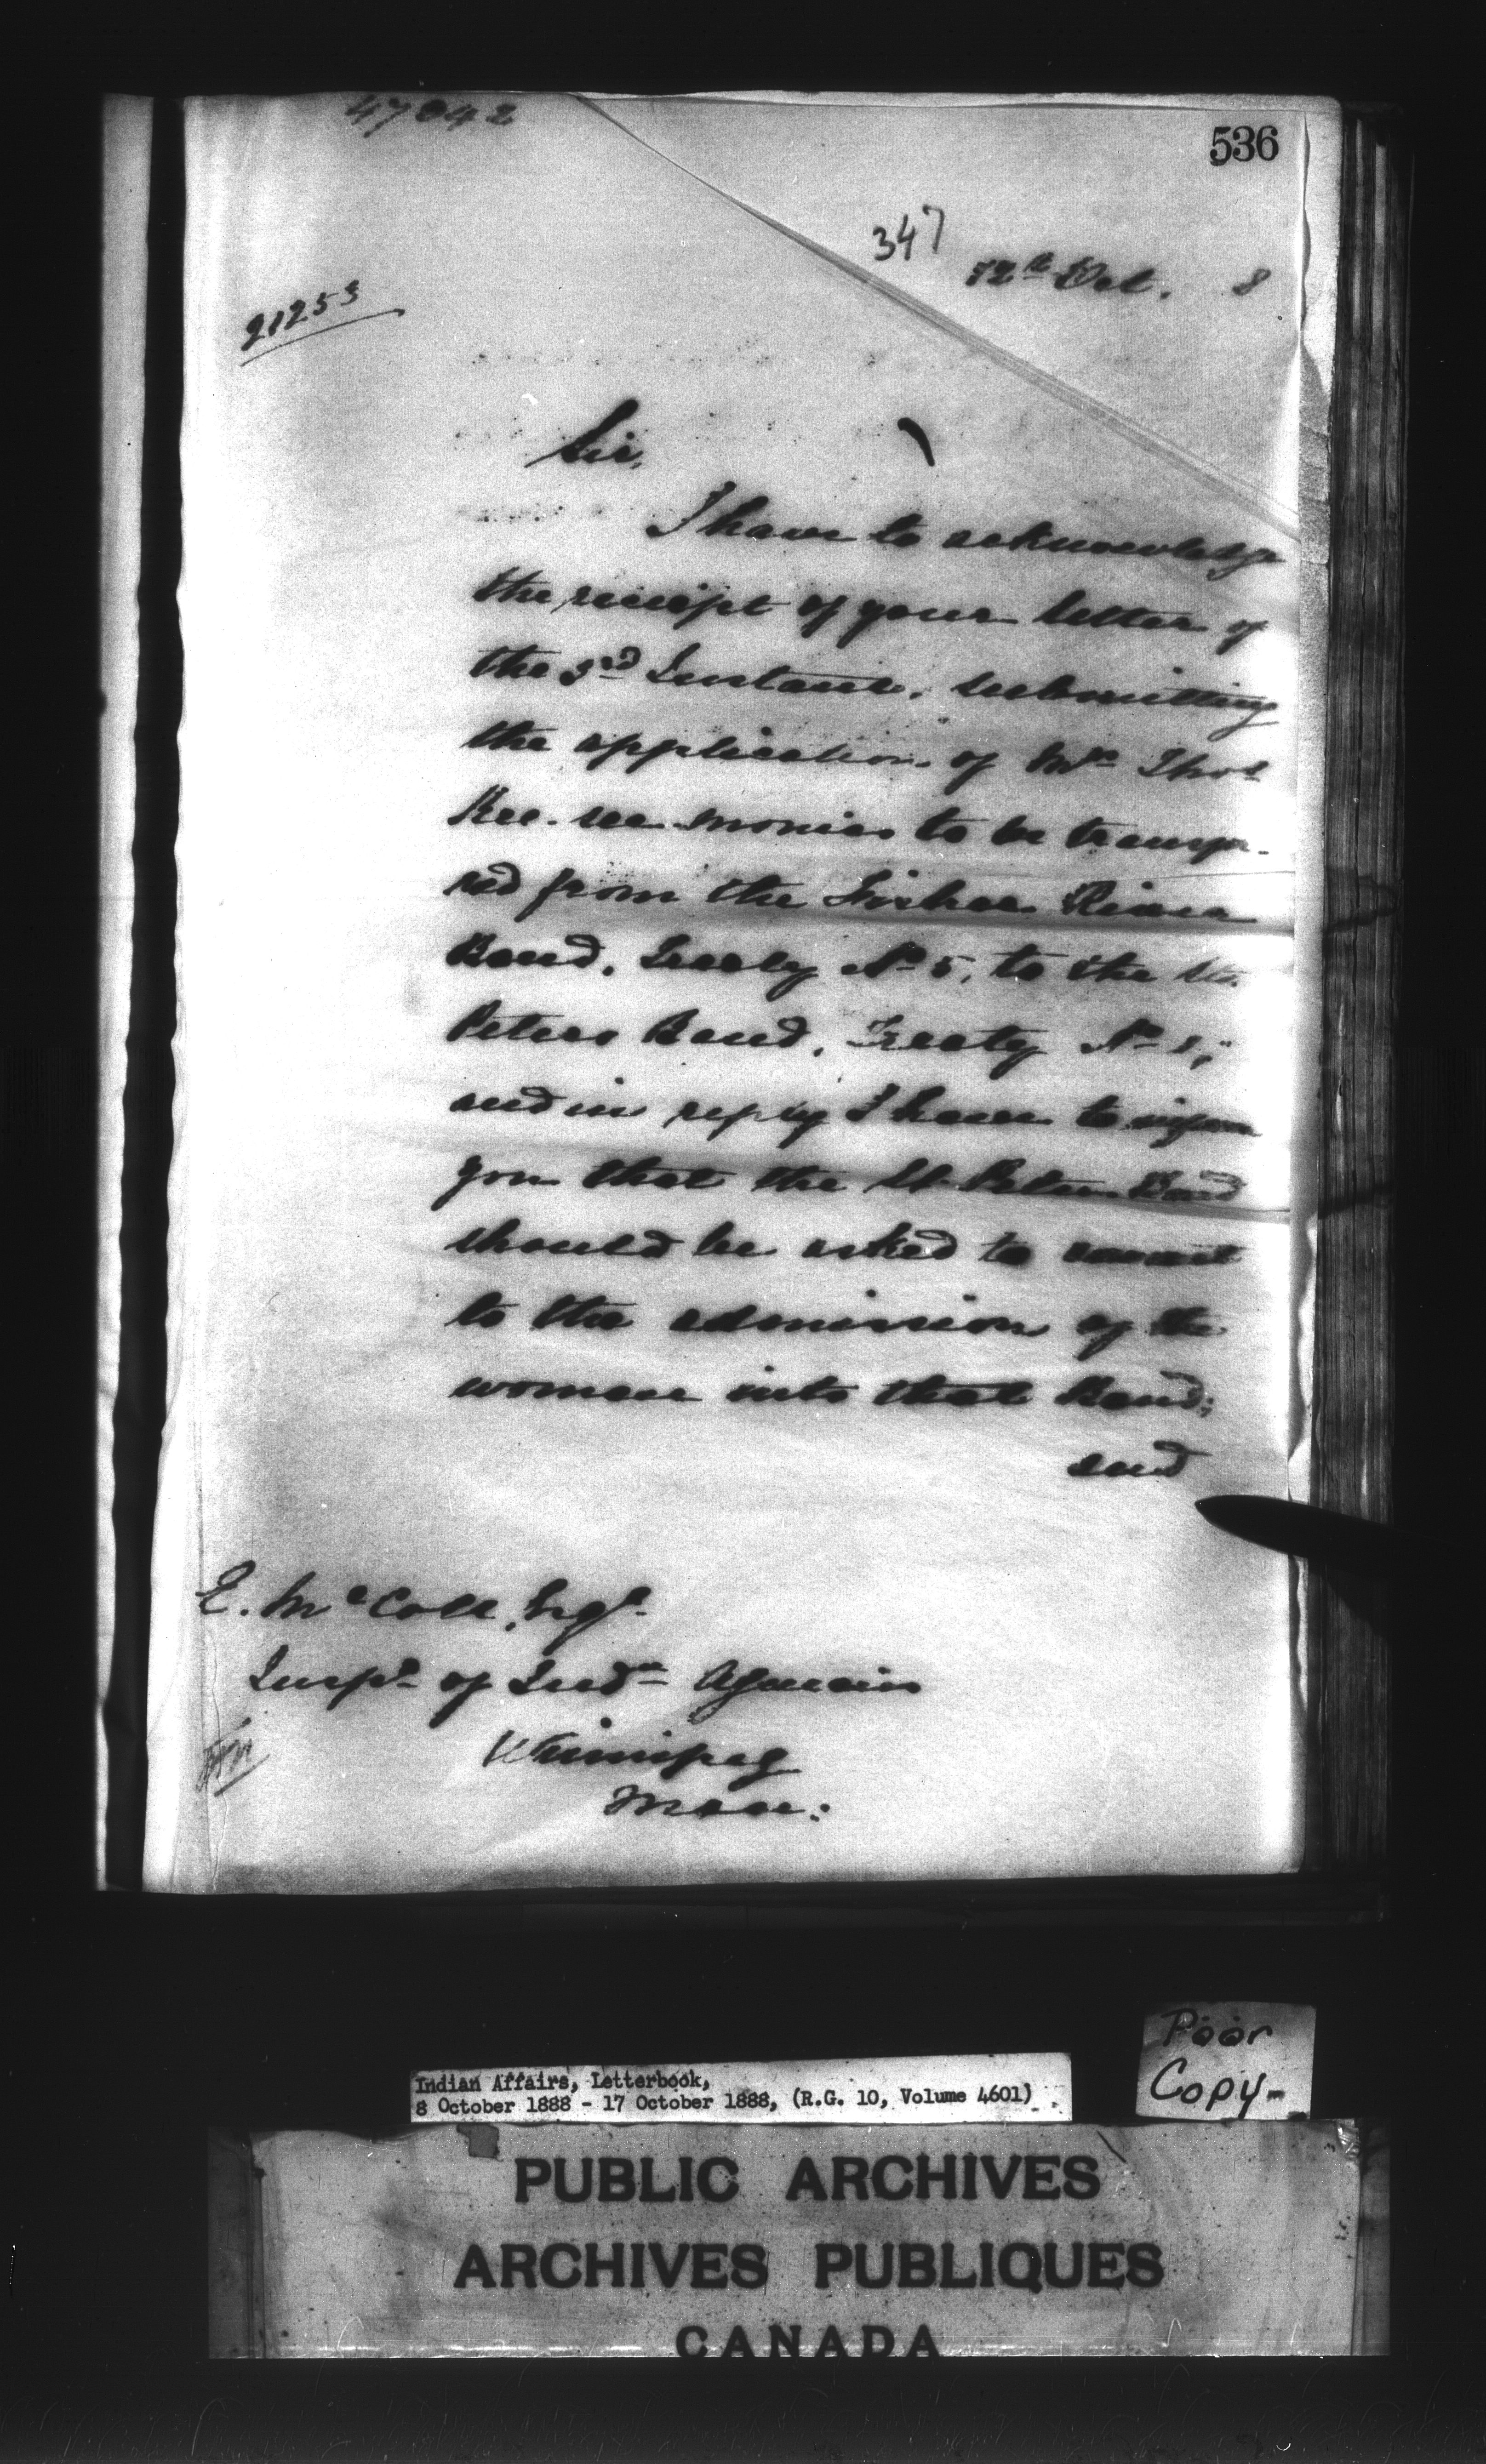 47842
536
347
12th Oct. 8
21253
Sir,
I have to acknowledge
the receipt of your letter of
the 3rd Instant, submitting
the application of Mrs Thos
to be transfer-
red from the Fisher River
Band, Treaty No 5, to the St.
Peters Band, Treaty No 1;
and in reply I have to inform
you that the St. Peters Band
should be asked to consent
to the admission of the
woman into that Band;
and
E. McColl, Esqr.
Inspr of Indn Agencies
Winnipeg
Man:
Poor
Copy-
Indian Affairs, Letterbook,
8 October 1888 - 17 October 1888, (R.G. 10, Volume 4601)
PUBLIC ARCHIVES
ARCHIVES PUBLIQUES
CANADA